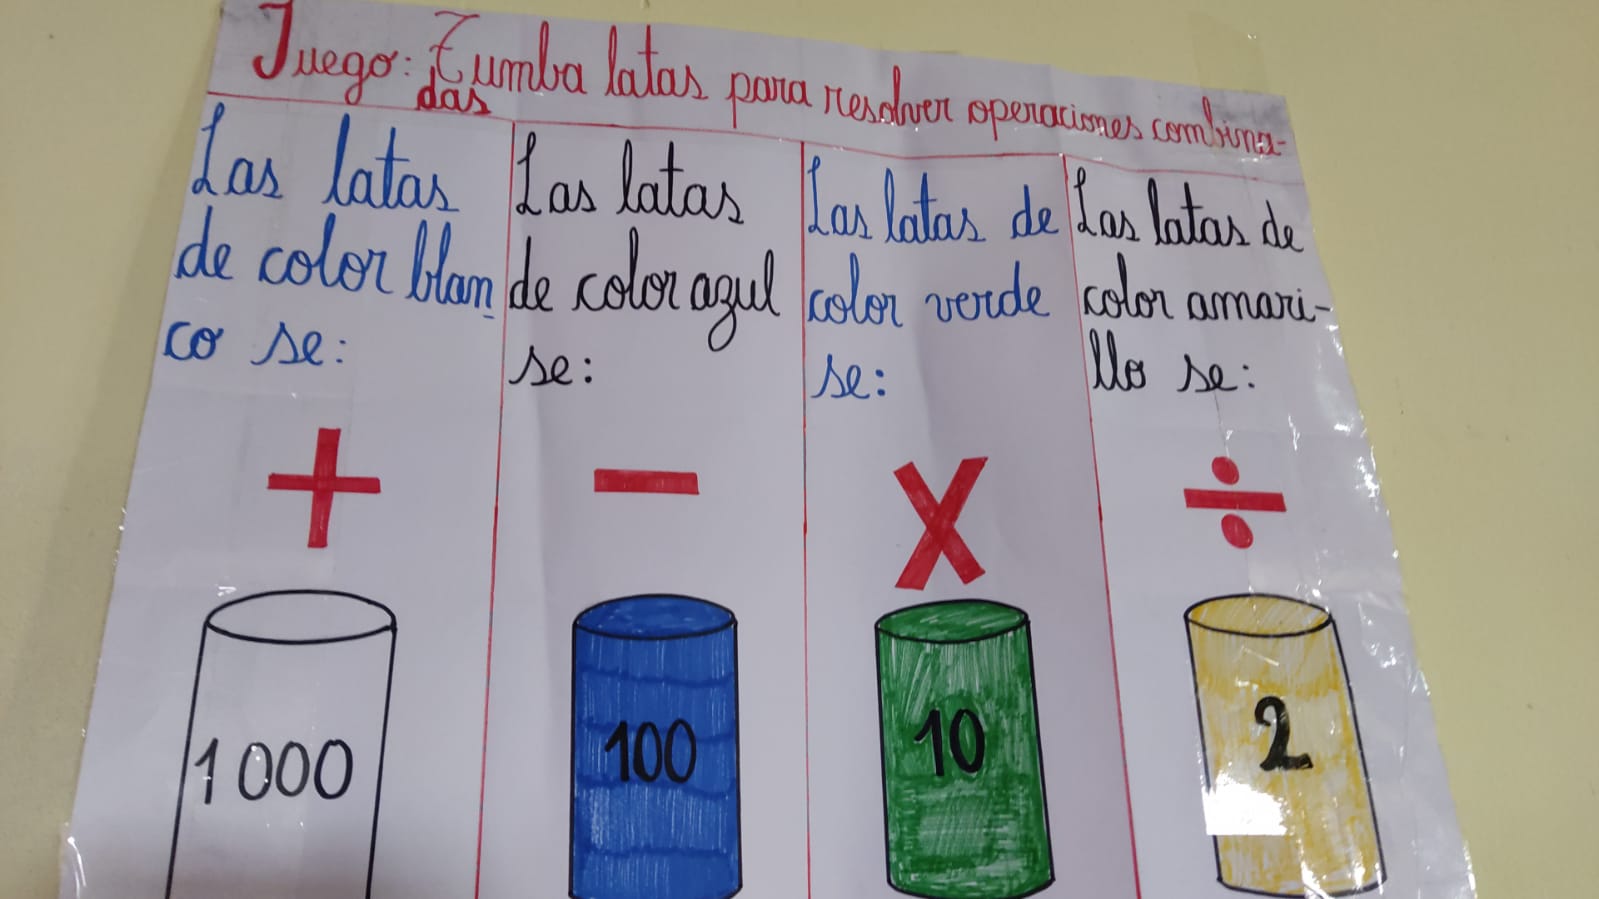 Juego: Tumba latas para resolver operaciones combina-
das
Las latas
de color blan
co se:
+
1 000
Las latas
de color azul
se:
-
100
Las latas de
color verde
se:
X
10
Las latas de
color amari-
llo se:
÷
2